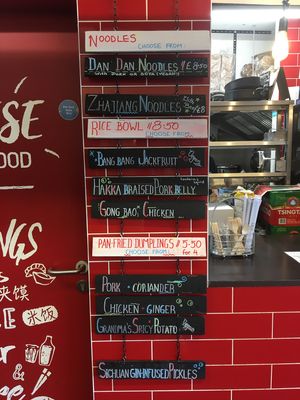 NOODLES
CHOOSE FROM:
DAN DAN NOODLES £8·50
WITH PORK OR SOYA (VEGAN)
ZHAJIANG NOODLES
RICE BOWL £8·50
CHOOSE FROM:
BANG BANG JACKFRUIT
HAKKA BRAISED PORK BELLY
"GONG BAO" CHICKEN
PAN-FRIED DUMPLINGS £5·50
CHOOSE FROM: for 4
PORK + CORIANDER
CHICKEN + GINGER
GRANDMA'S SPICY POTATO
SICHUAN GIN-INFUSED PICKLES
SE
FOOD
NGS
夹馍
米饭
TSINGT